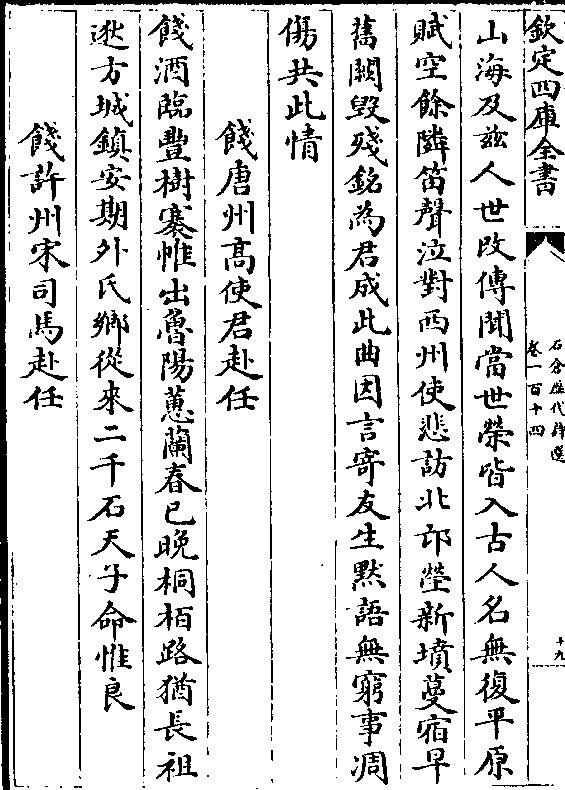 欽定四庫全書
石倉歷代詩選
卷一百十四
十九
山海及兹人世改傳聞當世榮皆入古人名無復平原
賦空餘隣笛聲泣對西州使悲訪北邙塋新墳蔓宿早
舊闕毀殘銘為君成此曲因言寄友生默語無窮事凋
傷共此情
餞唐州高使君赴任
餞酒臨豐樹褰帷出魯陽蕙蘭春已晚桐栢路猶長祖
逖方城鎮安期外氏鄉從來二千石天子命惟良
餞許州宋司馬赴任